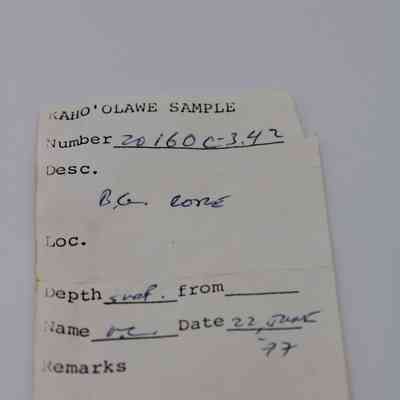 KAHO'OLAWE SAMPLE
Number 20160C-3.42
Desc.
B.G. CORE
Loc.
Depth surf. from
Name Date 22, JUNE
'77
Remarks